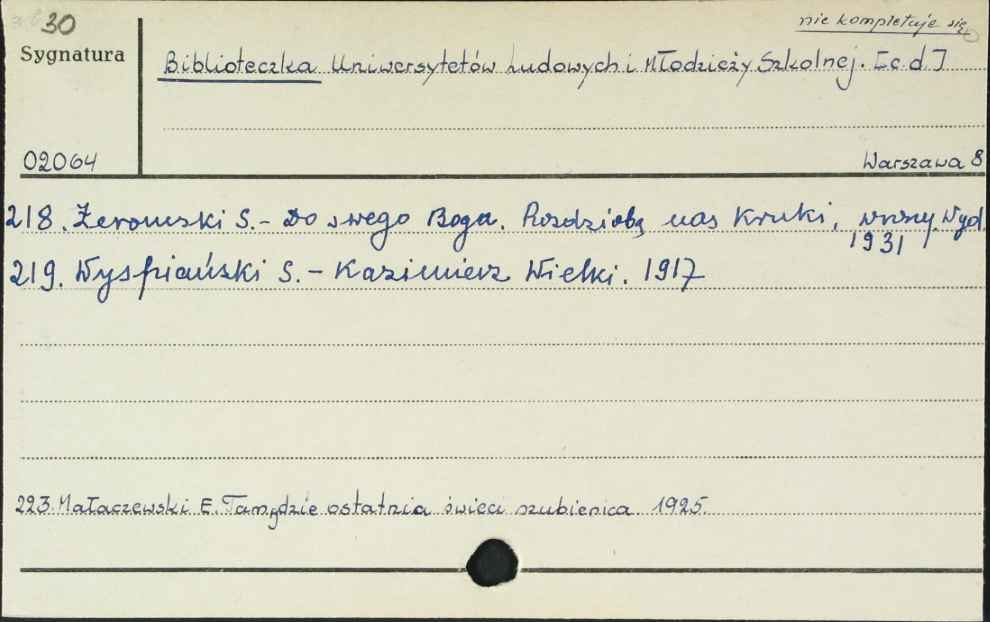 30
nie kompletuje się
Sygnatura
Biblioteczka Uniwersytetów Ludowych i Młodzieży Szkolnej. [c.d.]
02064
Warszawa 8
218. Żeromski S. - Do swego Boga. Rozdziobą nas Kruki, wrony. Wyd.
1931
219. Wyspiański S. - Kazimierz Wielki. 1917
223. Małaczewski E. Tam gdzie ostatnia świeci szubienica. 1925.